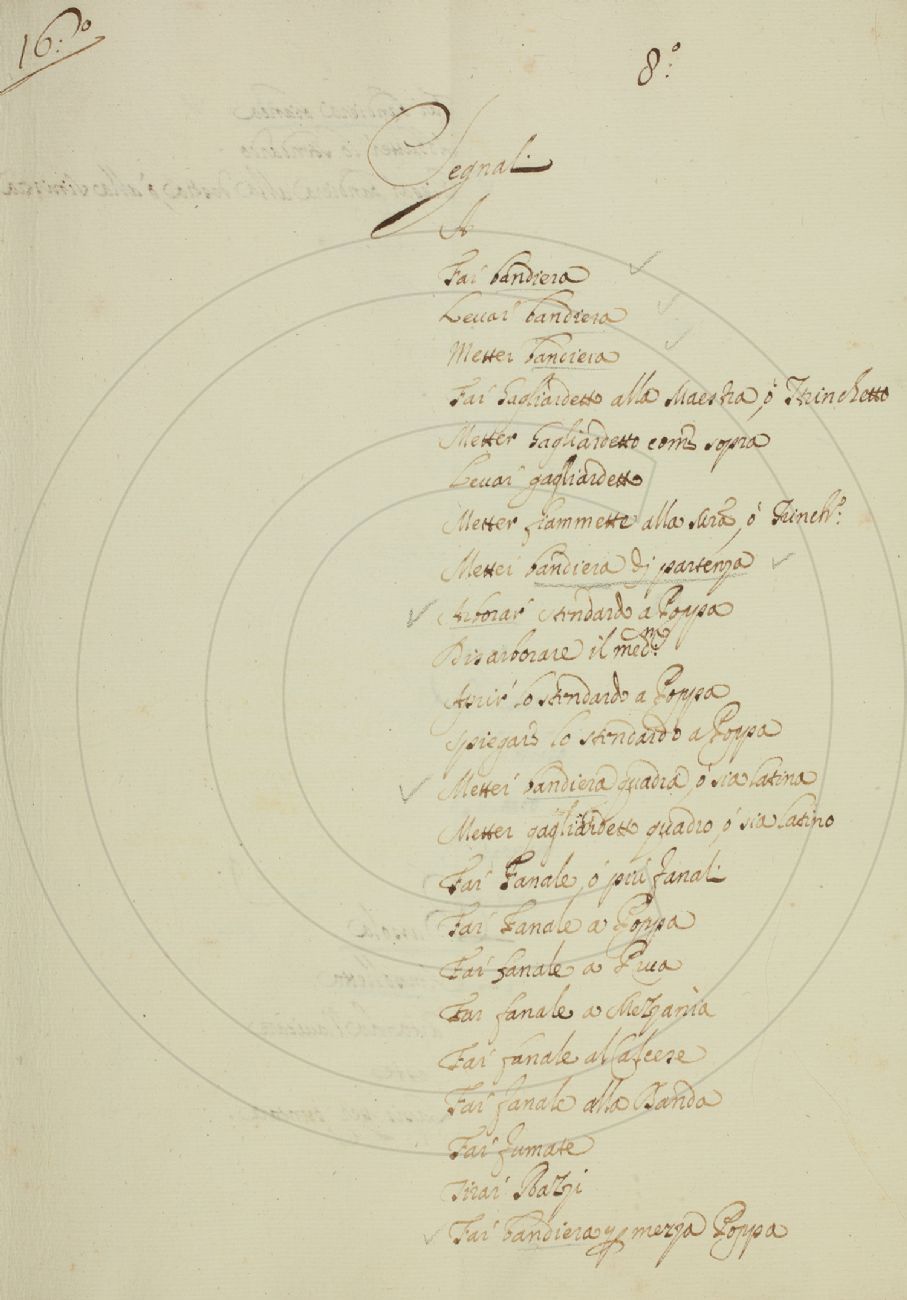 16.o
8.o
Segnali
A
Far bandiera
Levar bandiera
Metter bandiera
Far Gagliardetto alla Maestra, ó Trinchetto
Metter Gagliardetto come sopra
Levar gagliardetto
Metter fiammette alla Mra, ó Trinch.o
Metter bandiera di partenza
Arborar stendardo a Poppa
Disarborare il med.mo
Aprir lo stendardo a Poppa
Spiegar lo stendardo a Poppa
Metter bandiera quadra, ó sia latina
Metter gagliardetto quadro, ó sia latino
Far Fanale, ó piú fanali
Far Fanale a Poppa
Far fanale a Prua
Far fanale a Mezania
Far fanale al Calcese
Far fanale alla Banda
Far fumate
Tirar Pozzi
Far bandiera p mezza Poppa